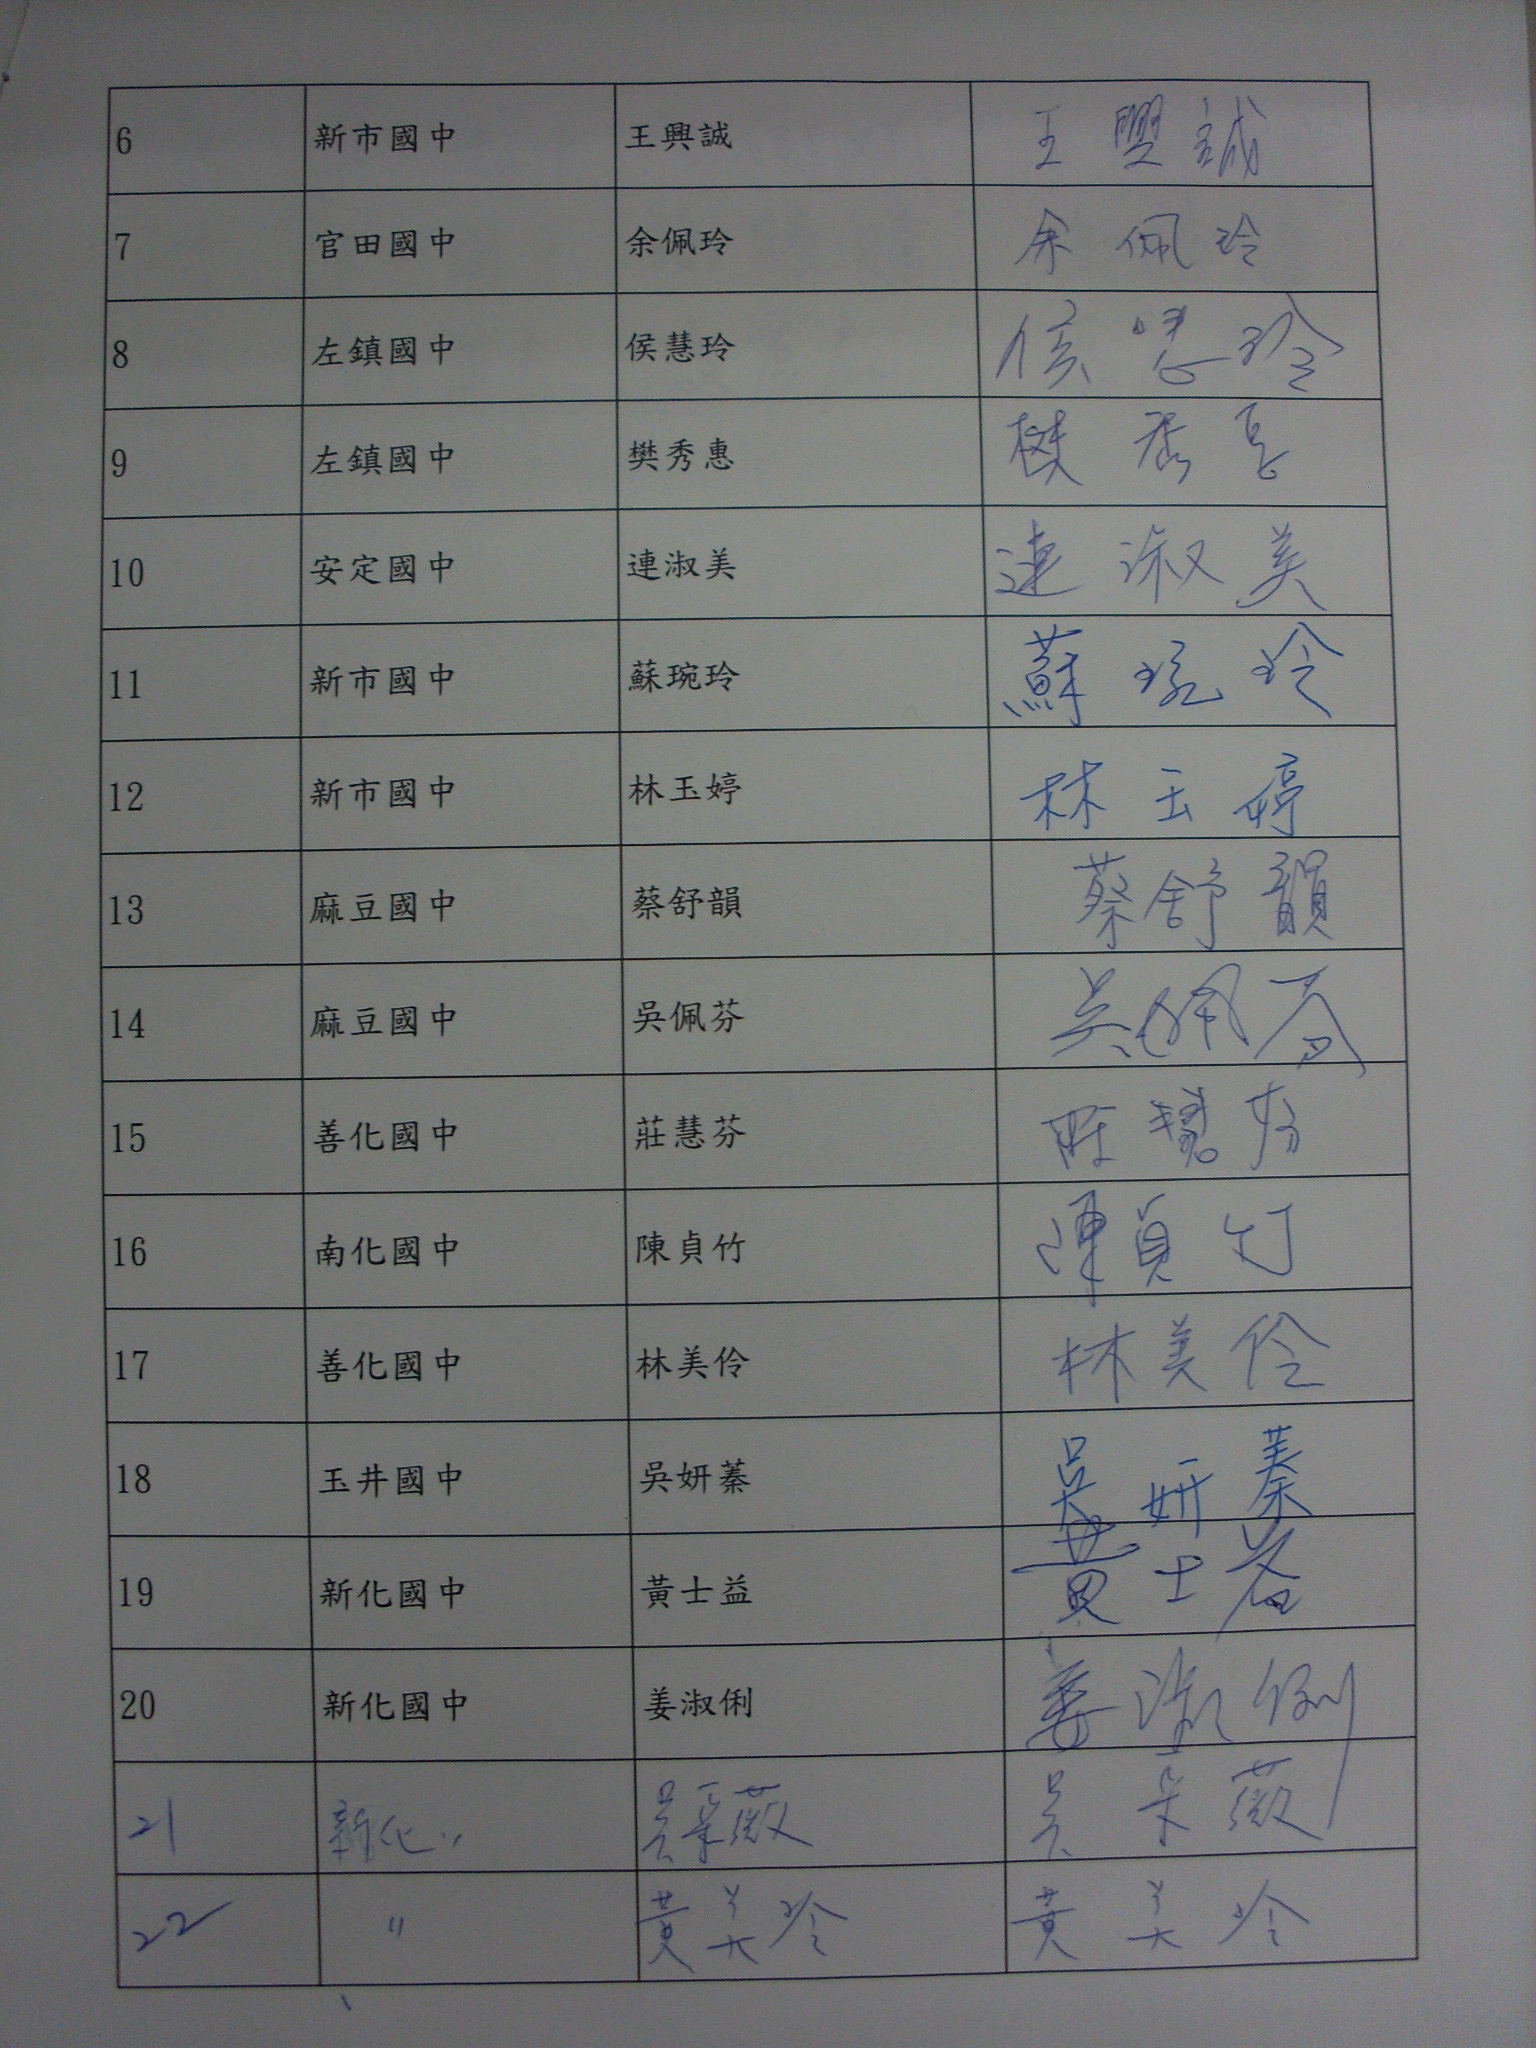 6 新市國中 王興誠 王興誠
7 官田國中 余佩玲 余佩玲
8 左鎮國中 侯慧玲 侯慧玲
9 左鎮國中 樊秀惠 樊秀惠
10 安定國中 連淑美 連淑美
11 新市國中 蘇琬玲 蘇琬玲
12 新市國中 林玉婷 林玉婷
13 麻豆國中 蔡舒韻 蔡舒韻
14 麻豆國中 吳佩芬 吳佩芬
15 善化國中 莊慧芬 莊慧芬
16 南化國中 陳貞竹 陳貞竹
17 善化國中 林美伶 林美伶
18 玉井國中 吳妍蓁 吳妍蓁
19 新化國中 黃士益 黃士益
20 新化國中 姜淑俐 姜淑俐
21 新化〃 吳采薇 吳采薇
22 〃 黃美玲 黃美玲